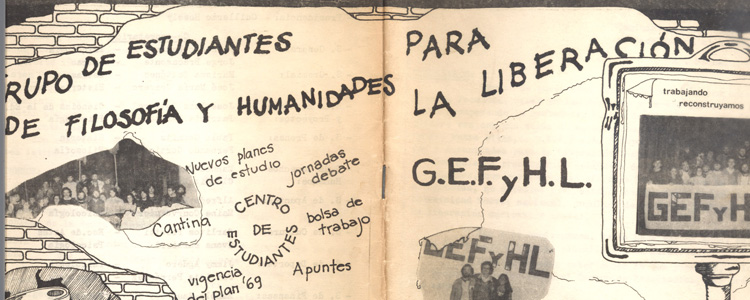 GRUPO DE ESTUDIANTES
DE FILOSOFÍA Y HUMANIDADES
PARA
LA LIBERACIÓN
G.E.F.yH.L.
Nuevos planes
de estudio
jornadas
debate
Cantina
CENTRO
DE
ESTUDIANTES
bolsa de
trabajo
vigencia
del plan '69
Apuntes
trabajando
reconstruyamos
GEFyH
GEFyHL